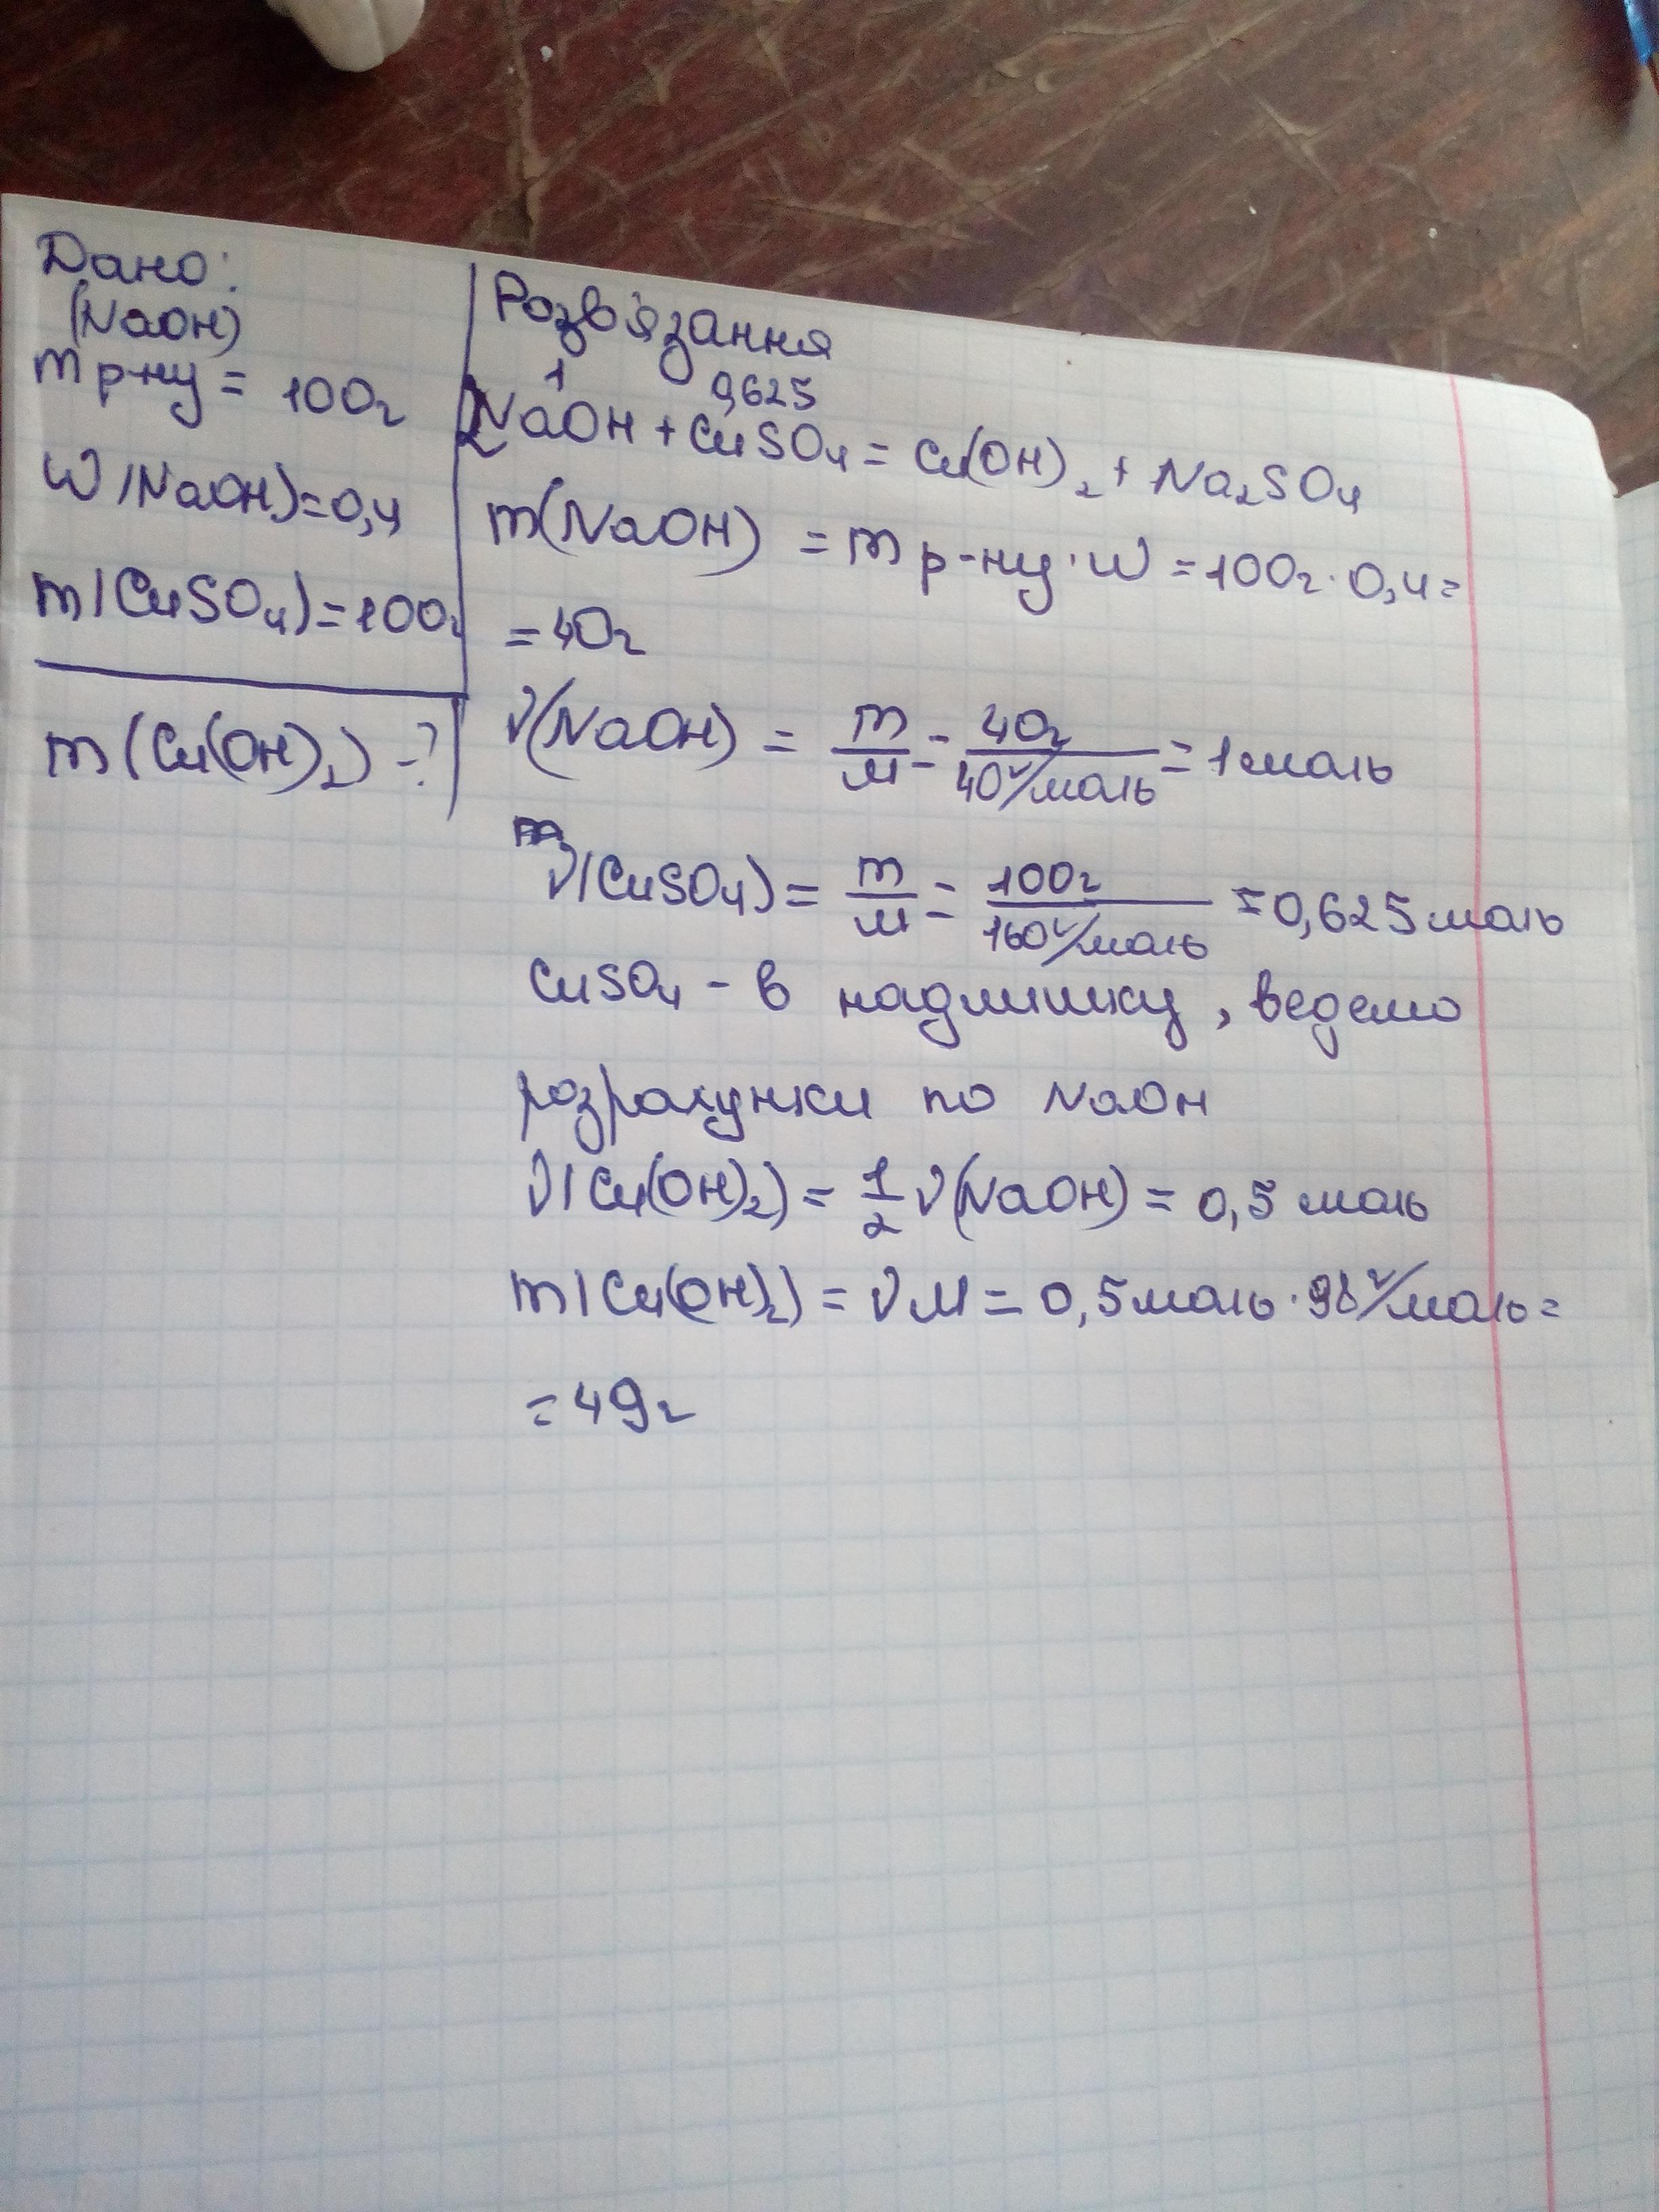 Дано:
(NaOH)
m р-ну = 100г
W(NaOH)=0,4
m(CuSO₄)=100г
m(Cu(OH)₂)-?
Розв'язання
1 0,625
2NaOH + CuSO₄ = Cu(OH)₂ + Na₂SO₄
m(NaOH) = m р-ну · W = 100г · 0,4 =
= 40г
ν(NaOH) = m/M = 40г/40г/моль = 1 моль
ν(CuSO₄) = m/M = 100г/160г/моль = 0,625 моль
CuSO₄ - в надлишку, ведемо
розрахунки по NaOH
ν(Cu(OH)₂) = 1/2 ν(NaOH) = 0,5 моль
m(Cu(OH)₂) = νM = 0,5 моль · 98г/моль =
= 49г